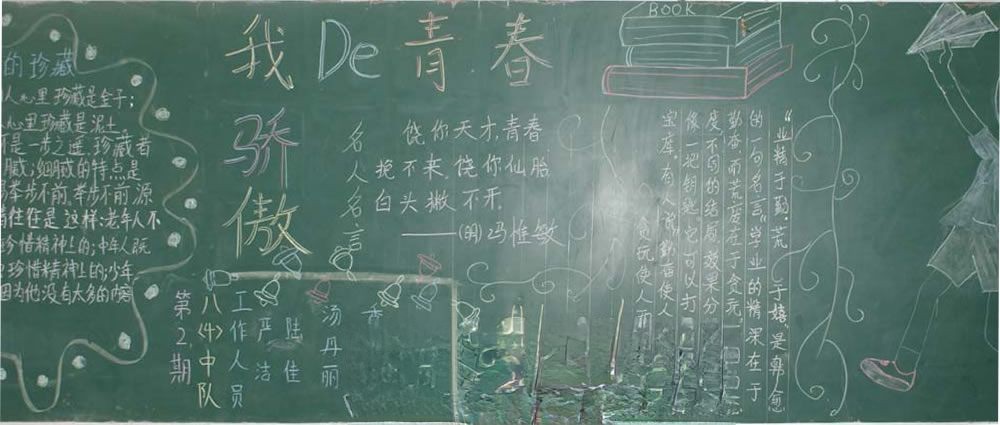 我De青春
骄傲
BOOK
的珍藏
人心里珍藏是金子;
心里珍藏是泥土
是一步之遥,珍藏者
腻;细腻的特点是
举步不前,举步不前,源
往往是这样:老年人不
珍惜精神上的;中年人既
珍惜精神上的;少年
因为他没有太多的
名人名言
饶你天才,青春
挽不来,饶你仙胎
白头撇不开.
——(明)冯惟敏
"业精于勤.荒于嬉"是韩愈
的一句名言"学业的精深在于
勤奋,而荒废在于贪玩
度不同的结质,效果分
像一把钥匙,它可以打
宝库.有人说"勤奋使人
贪玩使人而
第2期
八(4)中队
工作人员
严洁
陆佳
汤丹丽